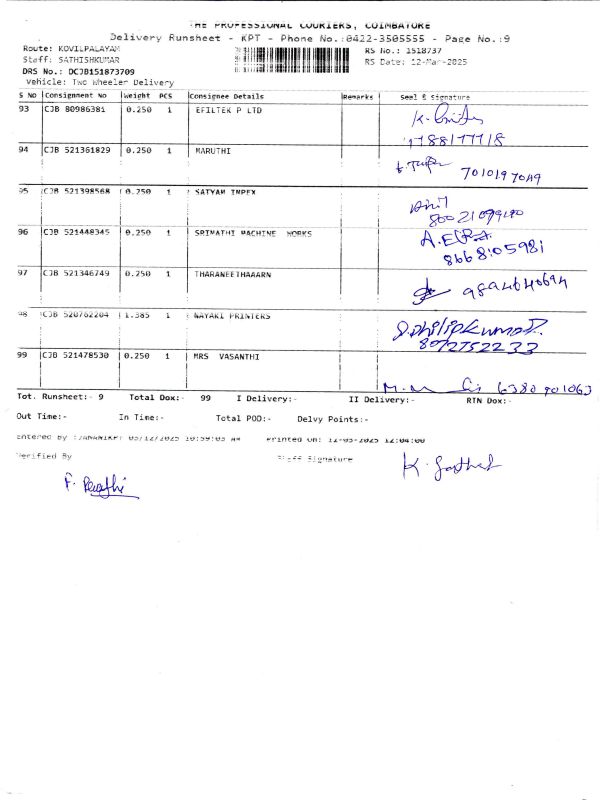 THE PROFESSIONAL COURIERS, COIMBATORE
Delivery Runsheet - KPT - Phone No.:0422-3505555 - Page No.:9
Route: KOVILPALAYAM RS No.: 1518737
Staff: SATHISHKUMAR RS Date: 12-Mar-2025
DRS No.: DCJB151873709
Vehicle: Two Wheeler Delivery
S No Consignment No Weight PCS Consignee Details Remarks Seal & Signature
93 CJB 80986381 0.250 1 EFILTEK P LTD
94 CJB 521361829 0.250 1 MARUTHI
95 CJB 521398568 0.250 1 SATYAM IMPEX
96 CJB 521448345 0.250 1 SRIMATHI MACHINE WORKS
8668105981
97 CJB 521346749 0.250 1 THARANEETHAAARN
9894640694
98 CJB 520762204 1.385 1 NAYAKI PRINTERS
99 CJB 521478530 0.250 1 MRS VASANTHI
6380901063
Tot. Runsheet:- 9 Total Dox:- 99 I Delivery:- II Delivery:- RTN Dox:-
Out Time:- In Time:- Total POD:- Delvy Points:-
Entered By :JANANIKPT 03/12/2025 10:59:03 AM Printed On: 12-03-2025 12:04:00
Verified By Staff Signature